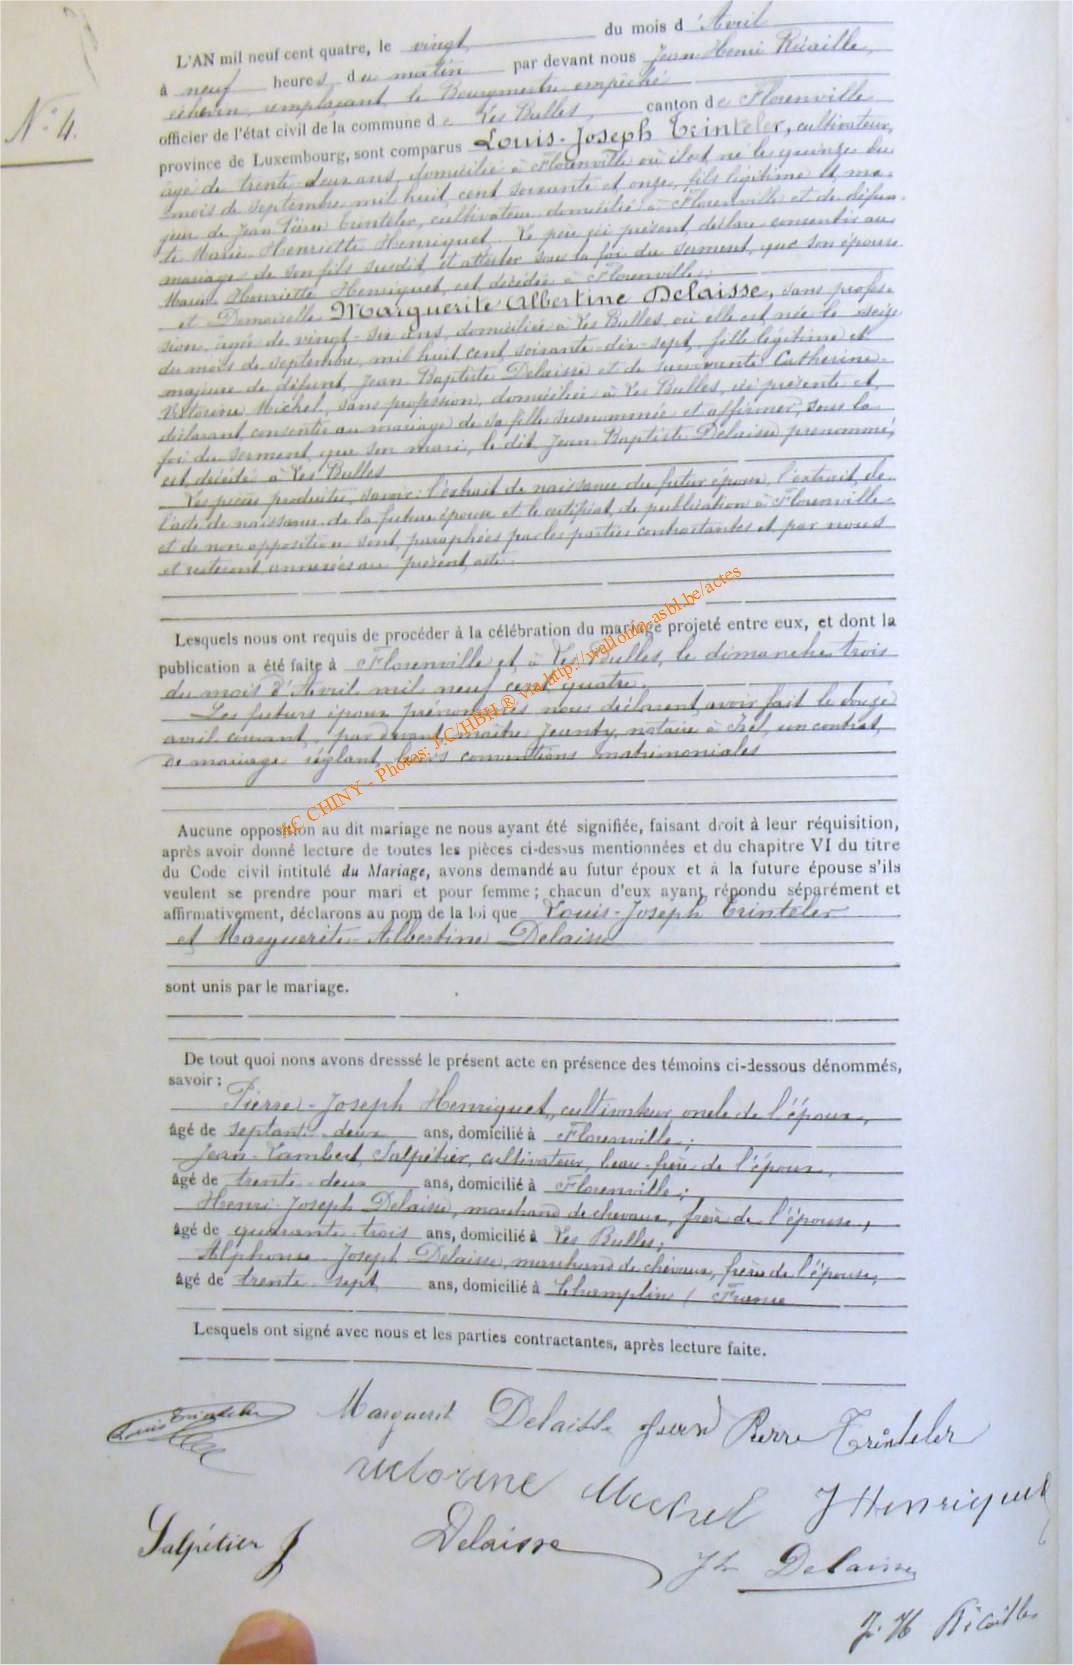 N° 4.
L'AN mil neuf cent quatre, le vingt du mois d'Avril
à neuf heures du matin par devant nous Jean Henri Ricaille,
échevin, remplaçant le Bourgmestre empêché
officier de l'état civil de la commune de Les Bulles, canton de Florenville
province de Luxembourg, sont comparus Louis-Joseph Trinteler, cultivateur,
âgé de trente-deux ans, domicilié à Florenville où il est né le quinze du
mois de septembre mil huit cent soixante et onze, fils légitime et ma-
jeur de Jean Pierre Trinteler, cultivateur domicilié à Florenville et de défun-
te Marie Henriette Henriquet. Le père ici présent, déclare consentir au
mariage de son fils susdit et attester sous la foi du serment, que son épouse
Marie Henriette Henriquet, est décédée à Florenville;
et Demoiselle Marguerite Albertine Delaisse, sans profes-
sion, âgée de vingt-six ans, domiciliée à Les Bulles, où elle est née le seize
du mois de septembre, mil huit cent soixante-dix-sept, fille légitime et
majeure de défunt Jean Baptiste Delaisse et de survivante Catherine-
Victorine Michel, sans profession, domiciliée à Les Bulles, ici présente et
déclarant consentir au mariage de sa fille susnommée et affirmer, sous la
foi du serment, que son mari, le dit Jean Baptiste Delaisse prénommé,
est décédé à Les Bulles
Les pièces produites, savoir: l'extrait de naissance du futur époux, l'extrait de
l'acte de naissance de la future épouse et le certificat de publication à Florenville
et de non opposition sont paraphées par les parties contractantes et par nous
et resteront annexées au présent acte.
Lesquels nous ont requis de procéder à la célébration du mariage projeté entre eux, et dont la
publication a été faite à Florenville et à Les Bulles, le dimanche trois
du mois d'Avril mil neuf cent quatre.
Les futurs époux prénommés nous déclarent avoir fait le douze
avril courant, par devant maître Jeanty, notaire à Izel, un contrat
de mariage réglant leurs conventions matrimoniales
AC CHINY - Photos: J.C/HBH ® via http://wallonia-asbl.be/actes
Aucune opposition au dit mariage ne nous ayant été signifiée, faisant droit à leur réquisition,
après avoir donné lecture de toutes les pièces ci-dessus mentionnées et du chapitre VI du titre
du Code civil intitulé du Mariage, avons demandé au futur époux et à la future épouse s'ils
veulent se prendre pour mari et pour femme ; chacun d'eux ayant répondu séparément et
affirmativement, déclarons au nom de la loi que Louis-Joseph Trinteler
et Marguerite-Albertine Delaisse
sont unis par le mariage.
De tout quoi nons avons dresssé le présent acte en présence des témoins ci-dessous dénommés,
savoir :
Pierre-Joseph Henriquet, cultivateur, oncle de l'époux,
âgé de septante deux ans, domicilié à Florenville;
Jean-Lambert Salpétier, cultivateur, beau-frère de l'époux,
âgé de trente-deux ans, domicilié à Florenville;
Henri-Joseph Delaisse, marchand de chevaux, frère de l'épouse,
âgé de quarante-trois ans, domicilié à Les Bulles;
Alphonse-Joseph Delaisse, marchand de chevaux, frère de l'épouse,
âgé de trente-sept ans, domicilié à Champlin / France
Lesquels ont signé avec nous et les parties contractantes, après lecture faite.
Louis Trinteler Marguerit Delaisse Jean Pierre Trinteler
victorine Michel J Henriquet
Salpétier J Delaisse Jh Delaisse
J. H Ricaille